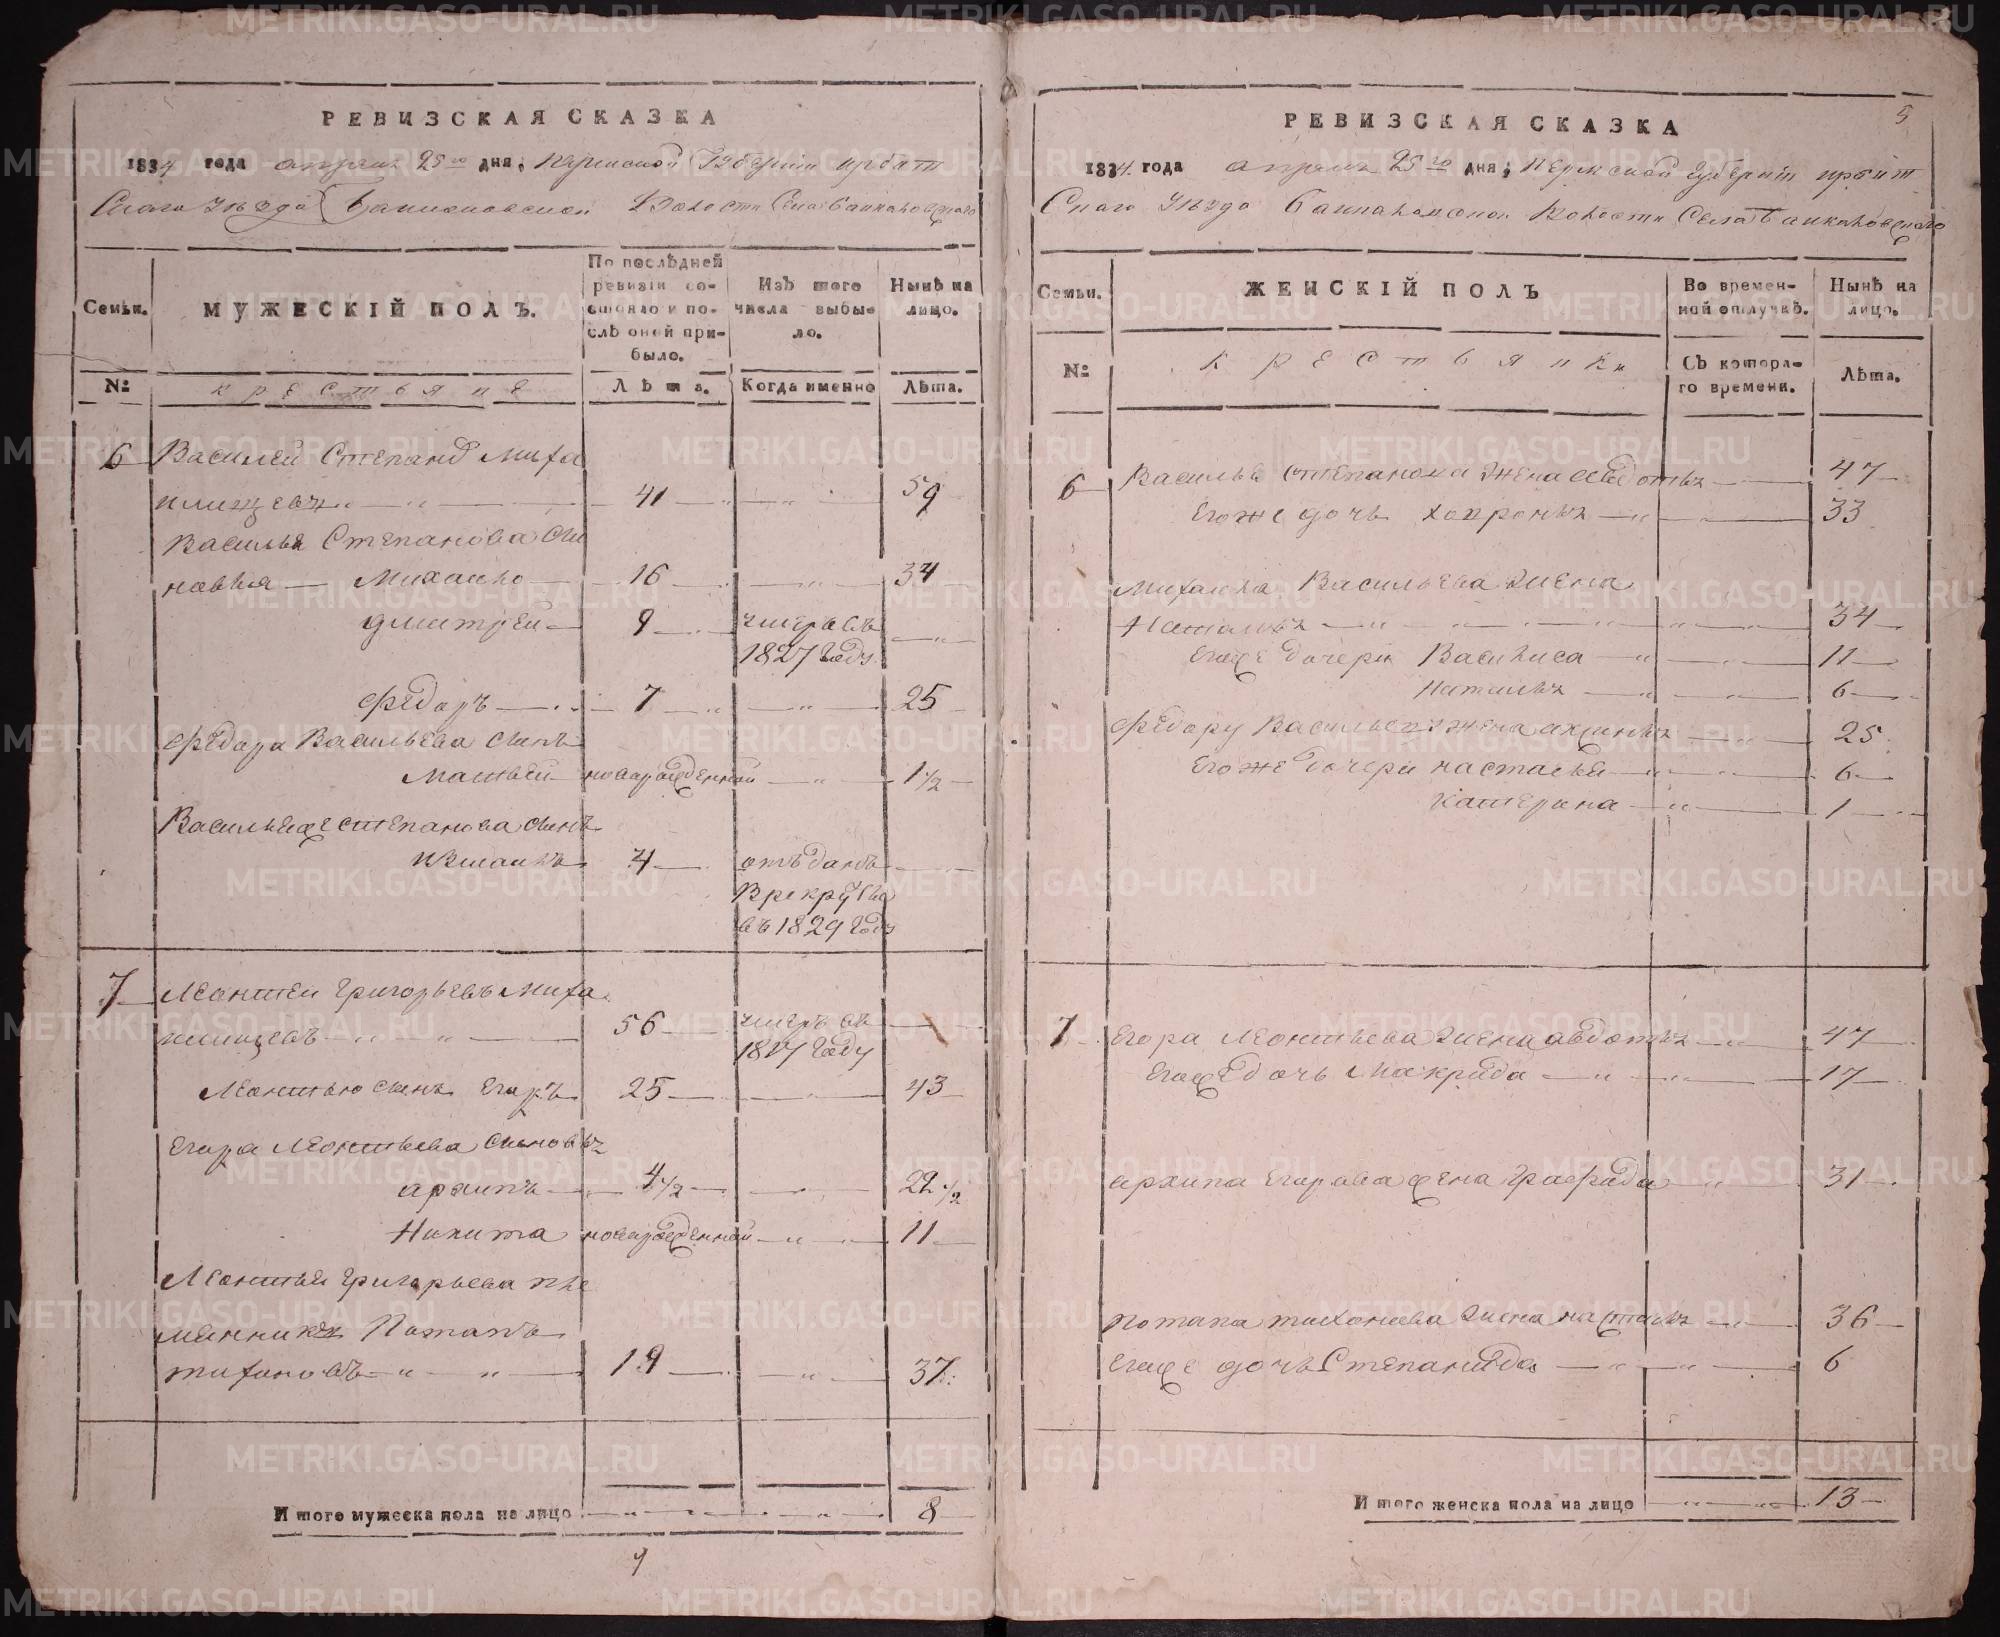 РЕВИЗСКАЯ СКАЗКА
1834 года апреля 25го дня, Пермской Губернии Ирбит
Скаго уезда Баикаловской Волости Села Баикаловскаго
Семьи.
МУЖЕСКІЙ ПОЛЪ.
По послѣдней ревизіи состояло и послѣ оной прибыло.
Изъ того числа выбыло.
Нынѣ на лицо.
№
крестьяне
Лѣта.
Когда именно
Лѣта.
6 Василей Степанов
41 59
Василья Степанова сы
новья Михаило 16 34
Дмитрей 9 умеръ въ
1827 году
Федоръ 7 25
Федора Васильева сынъ
Матвей новорожденной 1 1/2
Васильяже степанова сынъ
4 отъданъ
В рекруты
въ 1829 году
7 Леонтей Григорьевъ
56 умеръ въ
году
Леонтью сынъ Егоръ 25 43
Егора Леонтьева сыновья
архипъ 4 1/2 22 1/2
Никита новорожденной 11
Леонтья Григорьева пле
мянникъ Потапъ
тихоновъ 19 37
И того мужеска пола на лицо 8
РЕВИЗСКАЯ СКАЗКА
5
1834 года апреля 25го дня, Пермской губернии Ирбит
Скаго уезда Баикаловской Волости Села Баикаловскаго
Семьи.
ЖЕНСКІЙ ПОЛЪ
Во временной отлучкѣ.
Нынѣ на лицо.
№
крестьянки
Съ котораго времени.
Лѣта.
6 Василья степанова жена 47
Егоже дочь 33
Михаила Васильева жена
Наталья 34
Егоже дочери Василиса 11
Наталья 6
Федору Васильеву жена 25
Егоже дочери настасья 6
катерина 1
7 Егора Леонтьева жена авдотья 47
Егоже дочь Макрида 17
архипа Егорова жена 31
потапа тихонова жена 36
Егоже дочь Степанида 6
И того женска пола на лицо 13
METRIKI.GASO-URAL.RU